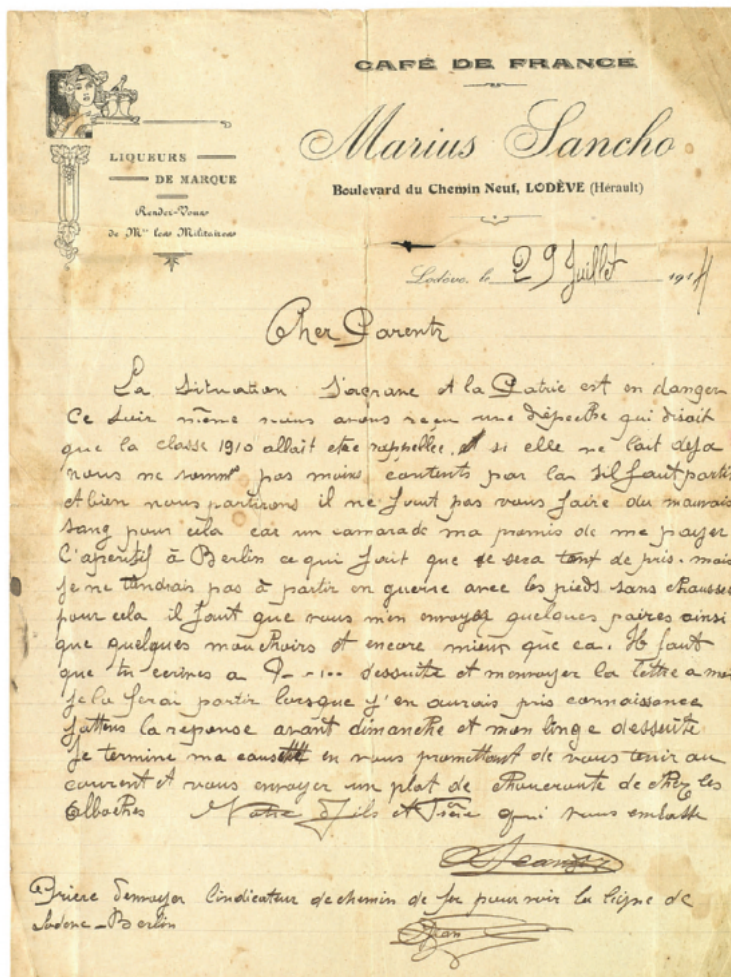 CAFÉ DE FRANCE
Marius Sancho
Boulevard du Chemin Neuf, LODÈVE (Hérault)
LIQUEURS
DE MARQUE
Rendez-Vous
de Mrs les Militaires
Lodève, le 29 Juillet 1914
Cher Parents
La situation s'agrave et la Patrie est en danger
Ce soir même nous avons reçu une dépeche qui disait
que la classe 1910 allait etre rappellée, si elle ne lait deja
nous ne somm pas moins contents par la sil faut partir
et bien nous partirons il ne faut pas vous faire du mauvais
sang pour cela car un camarade ma promis de me payer
l'aperitif à Berlin ce qui fait que se sera tant de pris. mais
je ne tiendrais pas à partir en guerre avec les pieds sans chausses
pour cela il faut que vous m'en envoyez quelques paires ainsi
que quelques mouchoirs et encore mieux que ca. Il faut
que tu ecrives a dessuite et m'envoyer la lettre a moi
je la ferai partir lorsque j'en aurais pris connaissance
j'attens la reponse avant dimanche et mon linge dessuite
Je termine ma en vous promettant de vous tenir au
courent et vous envoyer un plat de choucroute de chez les
Alboches Votre fils et frère qui vous embasse
Prière d'envoyer l'indicateur de chemin de fer pour voir la ligne de
Lodeve-Berlin
Jean